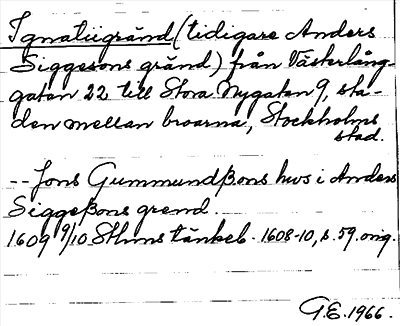 Ignatiigränd (tidigare Anders
Siggesons gränd) från Västerlång-
gatan 22 till Stora Nygatan 9, sta-
den mellan broarna, Stockholms
stad.
-- Jons Gummundßons hws i Anders
Siggeßons grend.
1609 9/10 Sthms tänkeb. 1608-10, s. 59. orig.
G.E. 1966.